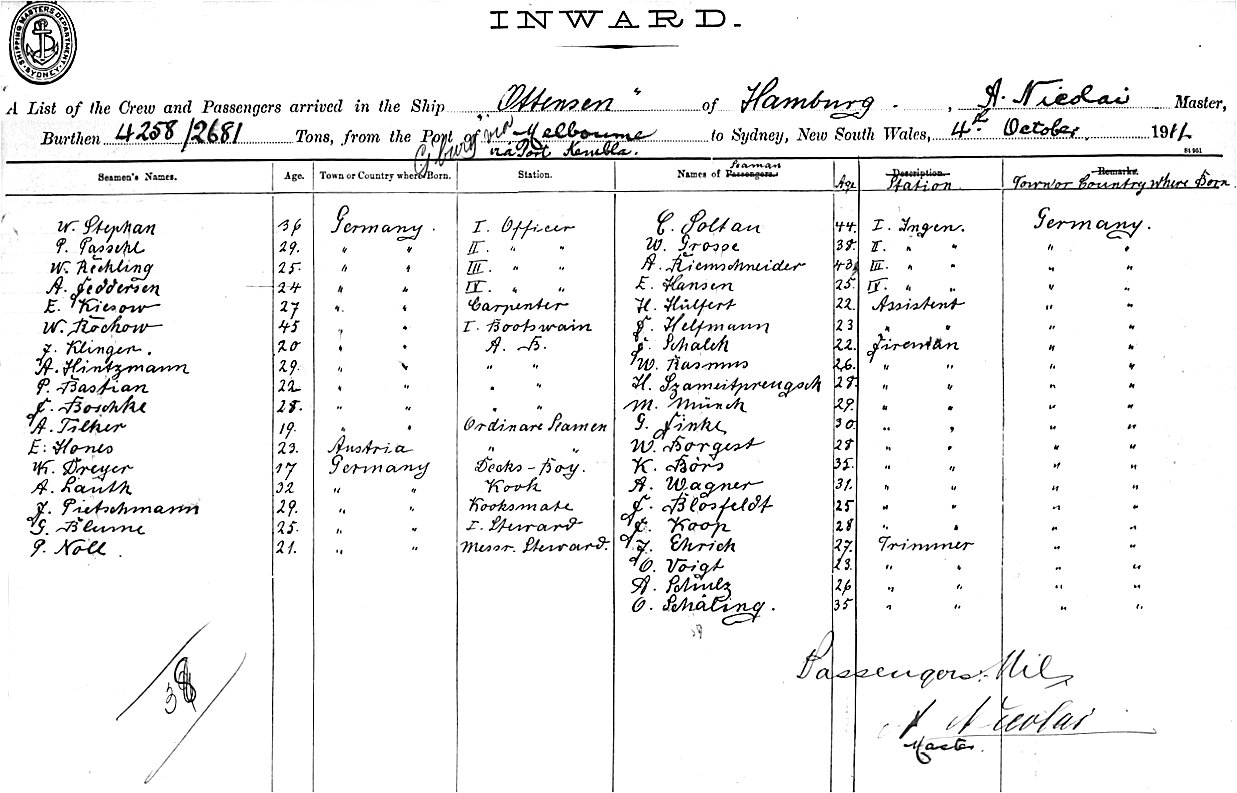 SHIPPING MASTERS DEPARTMENT. SYDNEY
INWARD.
A List of the Crew and Passengers arrived in the Ship "Ottensen" of Hamburg, A. Nicolai Master,
Burthen 4258/2681 Tons, from the Port of via Melbourne to Sydney, New South Wales, 4th October 1911
via Port Kembla.
Seamen's Names. Age. Town or Country where Born. Station. Names of Passengers. Seaman Age Description. Station Remarks. Town or Country Where Born
W. Stephan 36 Germany. I. Officer C. Soltau 44. I. Ingen. Germany.
P. Paschl 29. " " II. " " W. Grosse 38. II. " " " "
W. Rechling 25. " " III. " " A. Riemschneider 43 III. " " " "
A. Feddersen 24 " " IV. " " E. Hansen 25. IV. " " " "
E. Kiesow 27 " " Carpenter H. Hülfert 22. Assistent " "
W. Rochow 45 " " I. Bootswain F. Helfmann 23 " " " "
J. Klinger. 20 " " A. B. Schalch 22. Fireman " "
A. Hintzmann 29. " " " " W. Rasmus 26. " " " "
P. Bastian 22 " " " " H. Szameitpreugsch 28. " " " "
Boschke 28. " " " " M. Münch 29. " " " "
A. Tilker 19. " " Ordinare Seamen G. Finke 30. " " " "
E. Hones 23. Austria " " W. Borgest 28 " " " "
W. Dreyer 17 Germany Decks-Boy. K. Börs 35. " " " "
A. Lauth 32 " " Kook A. Wagner 31. " " " "
J. Pietschmann 29. " " Kooksmate F. Blösfeldt 25 " " " "
G. Blume 25. " " I. Steward Koop 28 " " " "
P. Noll. 21. " " Messr. Steward. J. Ehrich 27. Trimmer " "
O. Voigt 23. " " " "
A. Schulz 26 " " " "
O. Schäling. 35 " " " "
38
Passengers: Nil
A Nicolai
Master.